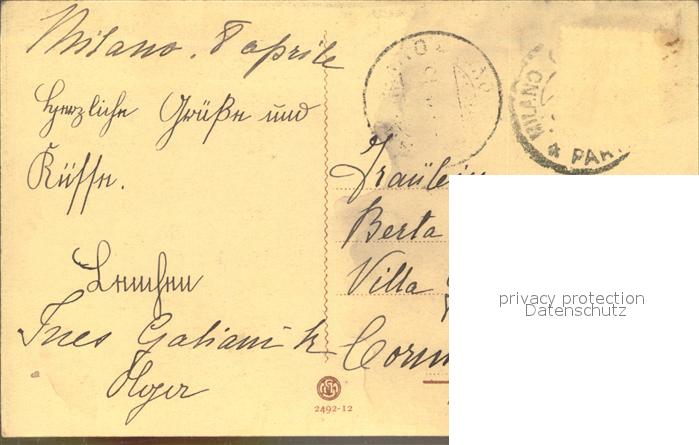 Milano. 8 aprile
Herzliche Grüße und
Küsse.
Lenchen
Ines Galianik
Olga
MILANO
* PAR
Fräulein
Berta
Villa
Corm
privacy protection
Datenschutz
2492-12